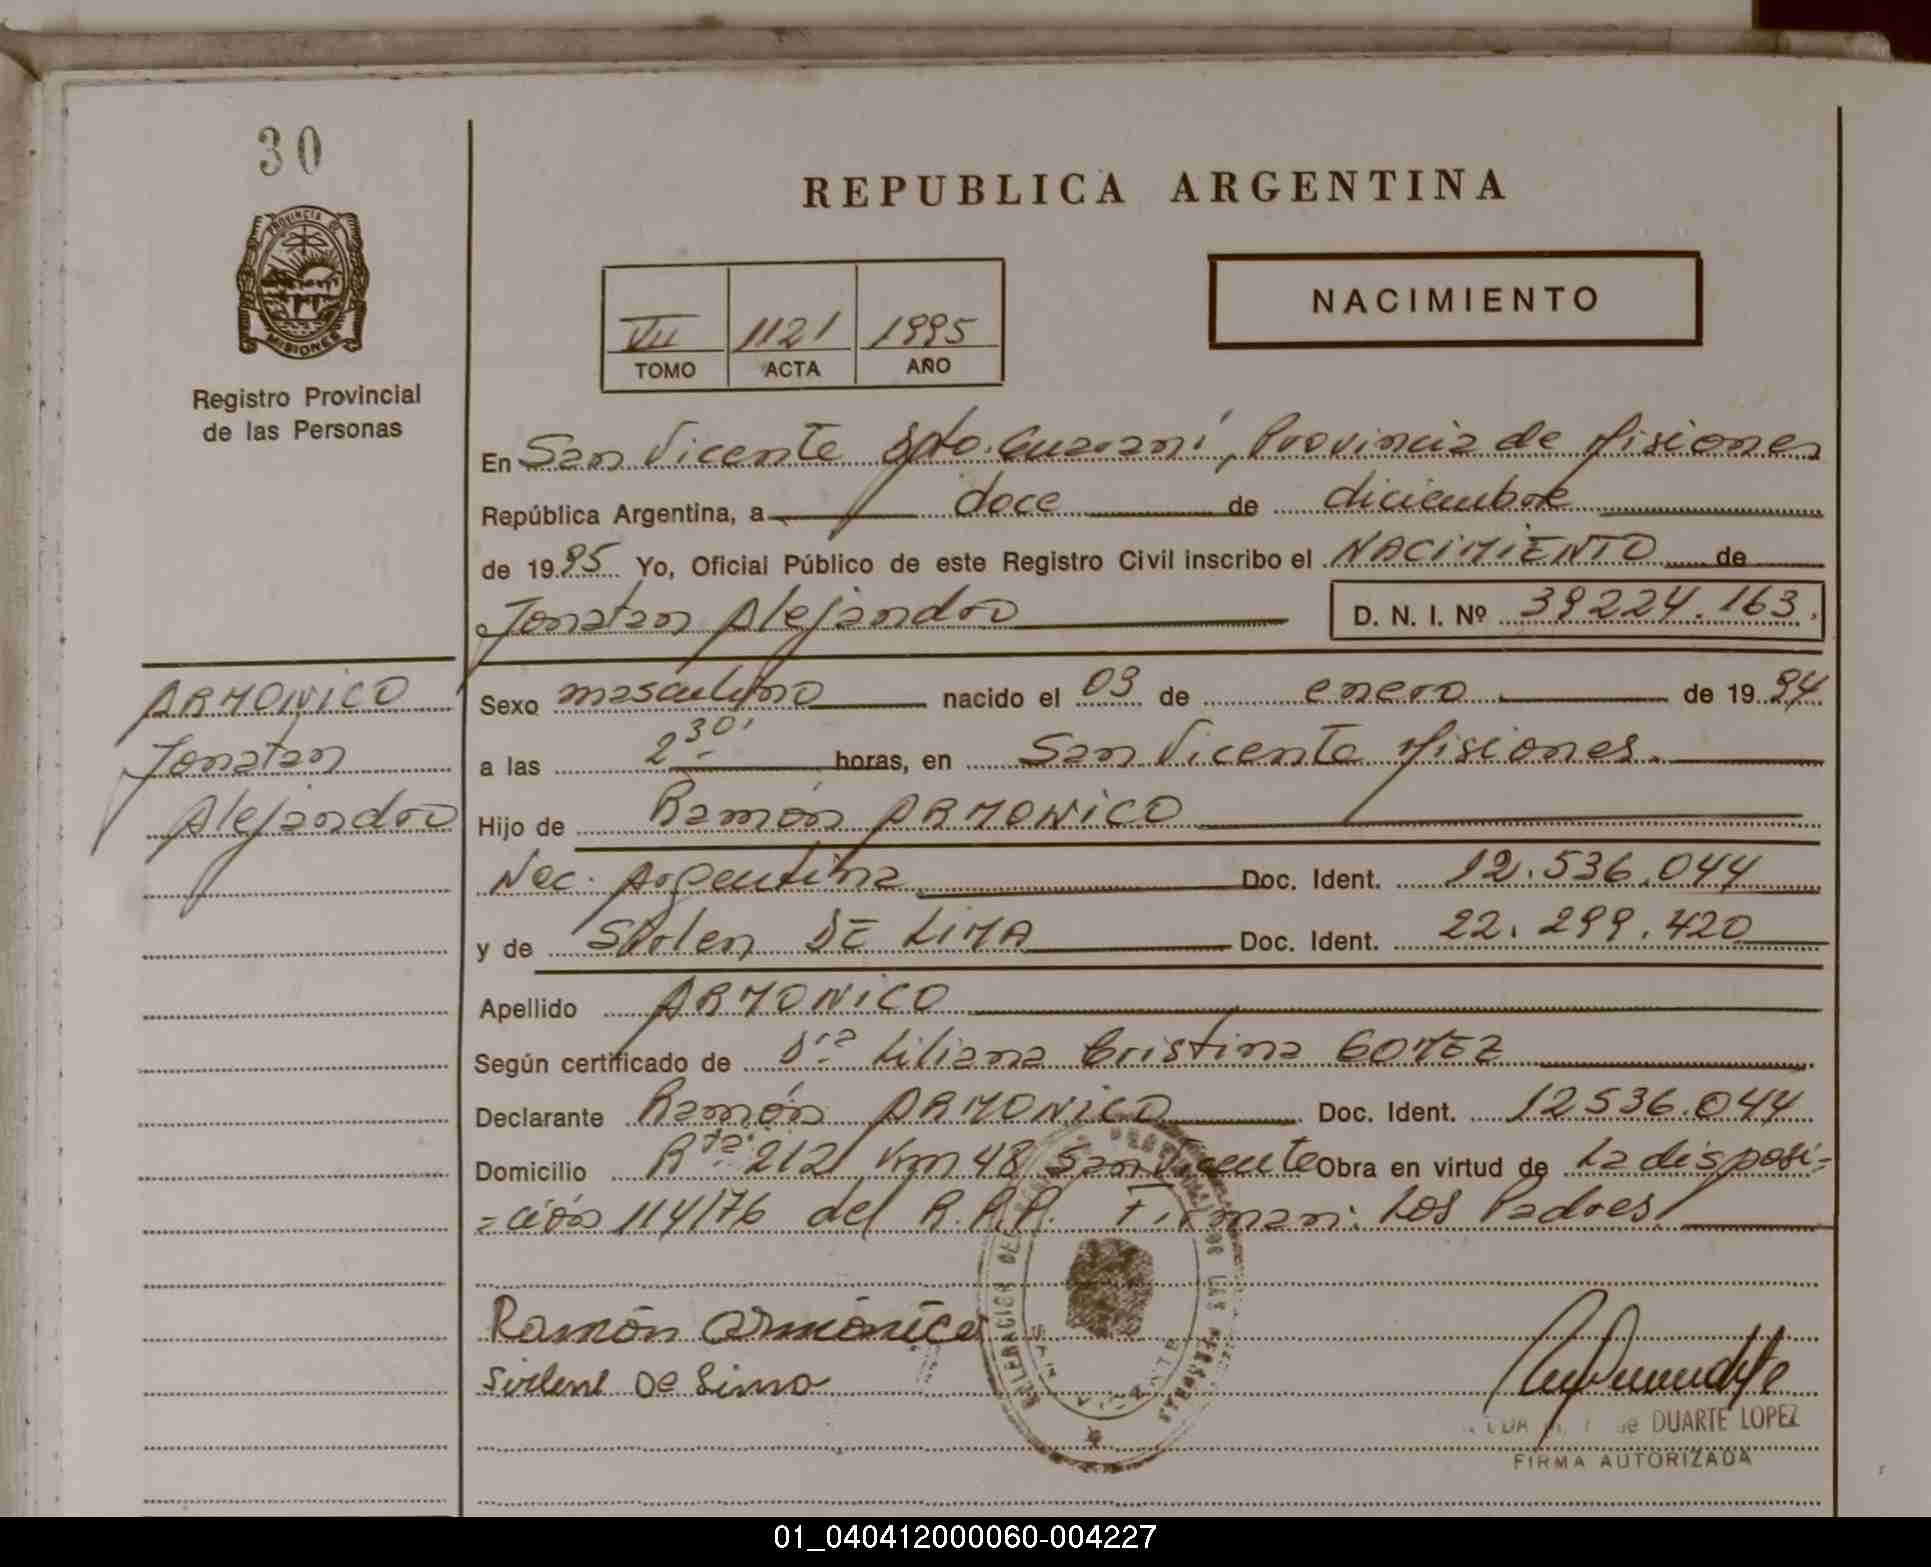 30
PROVINCIA DE
MISIONES
Registro Provincial
de las Personas
REPUBLICA ARGENTINA
VII 1121 1995
TOMO ACTA AÑO
NACIMIENTO
En San Vicente Dpto. Guaraní, Provincia de Misiones
República Argentina, a doce de diciembre
de 1995 Yo, Oficial Público de este Registro Civil inscribo el NACIMIENTO de
Jonatan Alejandro D. N. I. Nº 39224.163.
ARMONICO
Jonatan
Alejandro
Sexo masculino nacido el 03 de enero de 1994
a las 2 30' horas, en San Vicente Misiones.
Hijo de Ramón ARMONICO
Nac. Argentina Doc. Ident. 12.536.044
y de DE LIMA Doc. Ident. 22.299.420
Apellido ARMONICO
Según certificado de Dra Liliana Cristina GOMEZ
Declarante Ramón ARMONICO Doc. Ident. 12536.044
Domicilio Rta. 212 Km 48 San Vicente Obra en virtud de La disposi=
=ción 114/76 del R.P.P. Firman: Los Padres
Ramón armónico
De Lima
SAN VICENTE
DE DUARTE LOPEZ
FIRMA AUTORIZADA
01_040412000060-004227